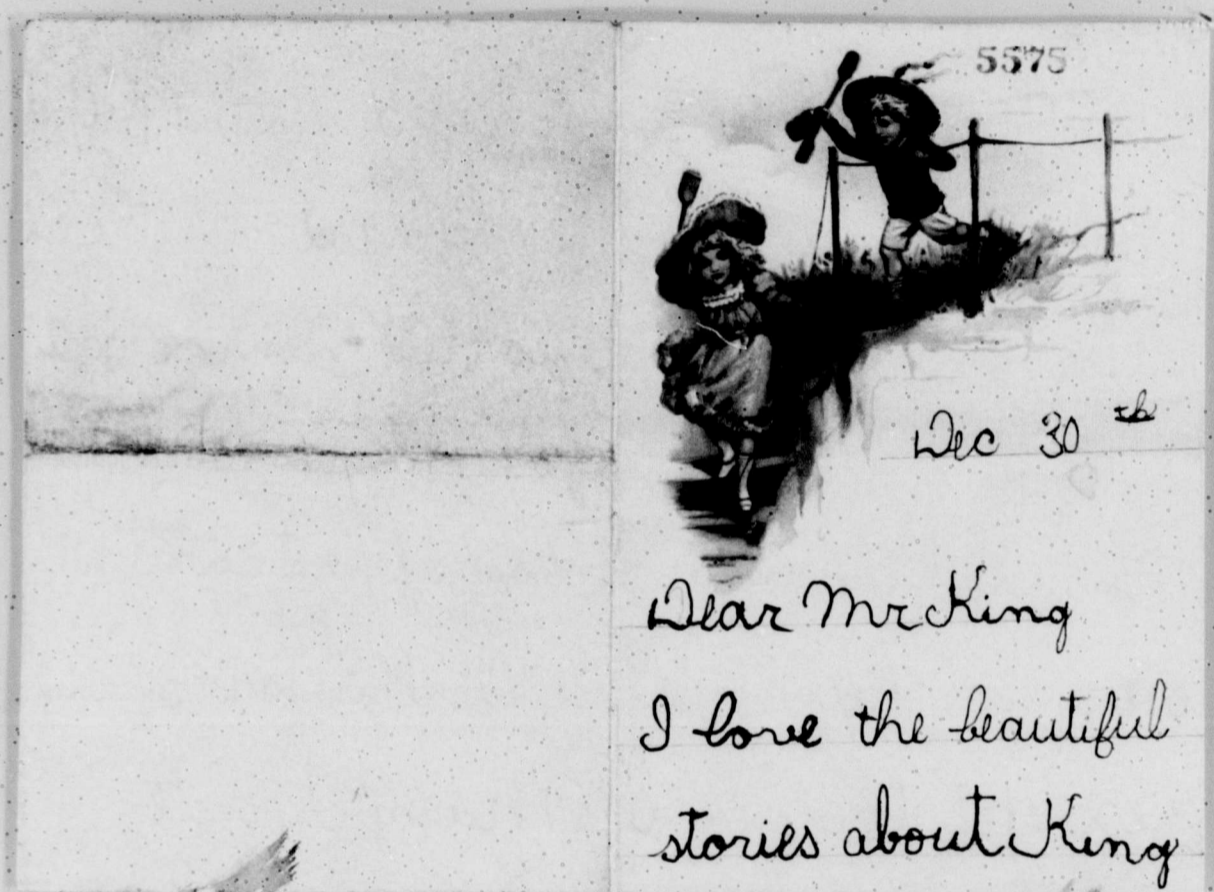 5575
Dec 30th
Dear Mr King
I love the beautiful
stories about King